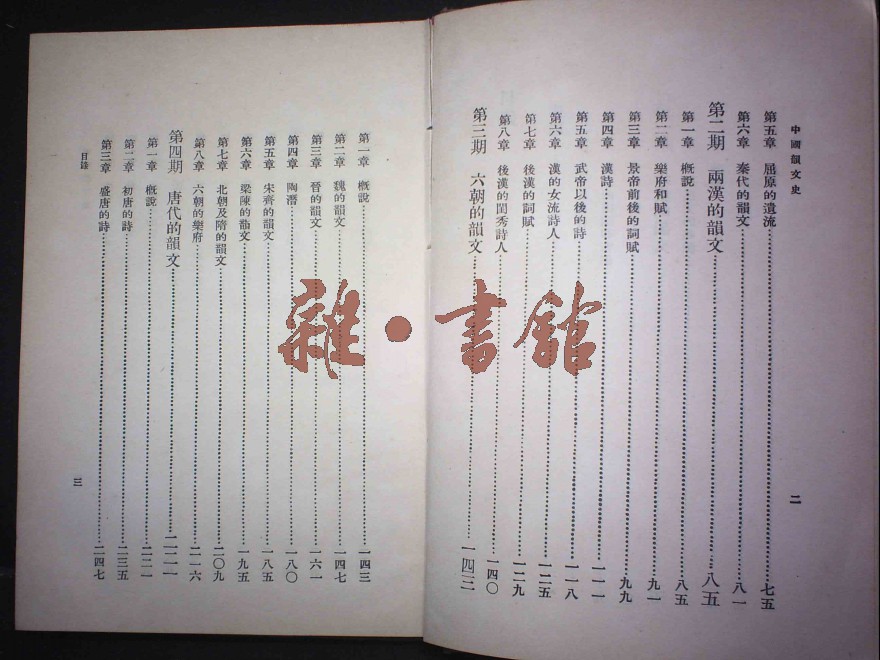 中國韻文史
第五章　屈原的遺流……七五
第六章　秦代的韻文……八一
第二期　兩漢的韻文……八五
第一章　概說……八五
第二章　樂府和賦……九一
第三章　景帝前後的詞賦……九九
第四章　漢詩……一一一
第五章　武帝以後的詩……一一八
第六章　漢的女流詩人……一二五
第七章　後漢的詞賦……一二九
第八章　後漢的閨秀詩人……一四〇
第三期　六朝的韻文……一四三
二
第一章　概說……一四三
第二章　魏的韻文……一四七
第三章　晉的韻文……一六一
第四章　陶潛……一八〇
第五章　宋齊的韻文……一八五
第六章　梁陳的韻文……一九五
第七章　北朝及隋的韻文……二〇九
第八章　六朝的樂府……二一六
第四期　唐代的韻文……二二一
第一章　概說……二二一
第二章　初唐的詩……二三五
第三章　盛唐的詩……二四七
目錄
三
雜·書館